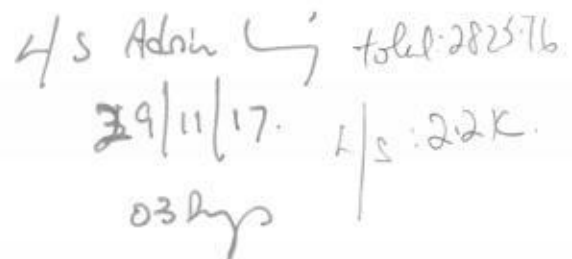 L/S Admin total: 2825.76
29/11/17. L/S: 2.2K.
03 Days